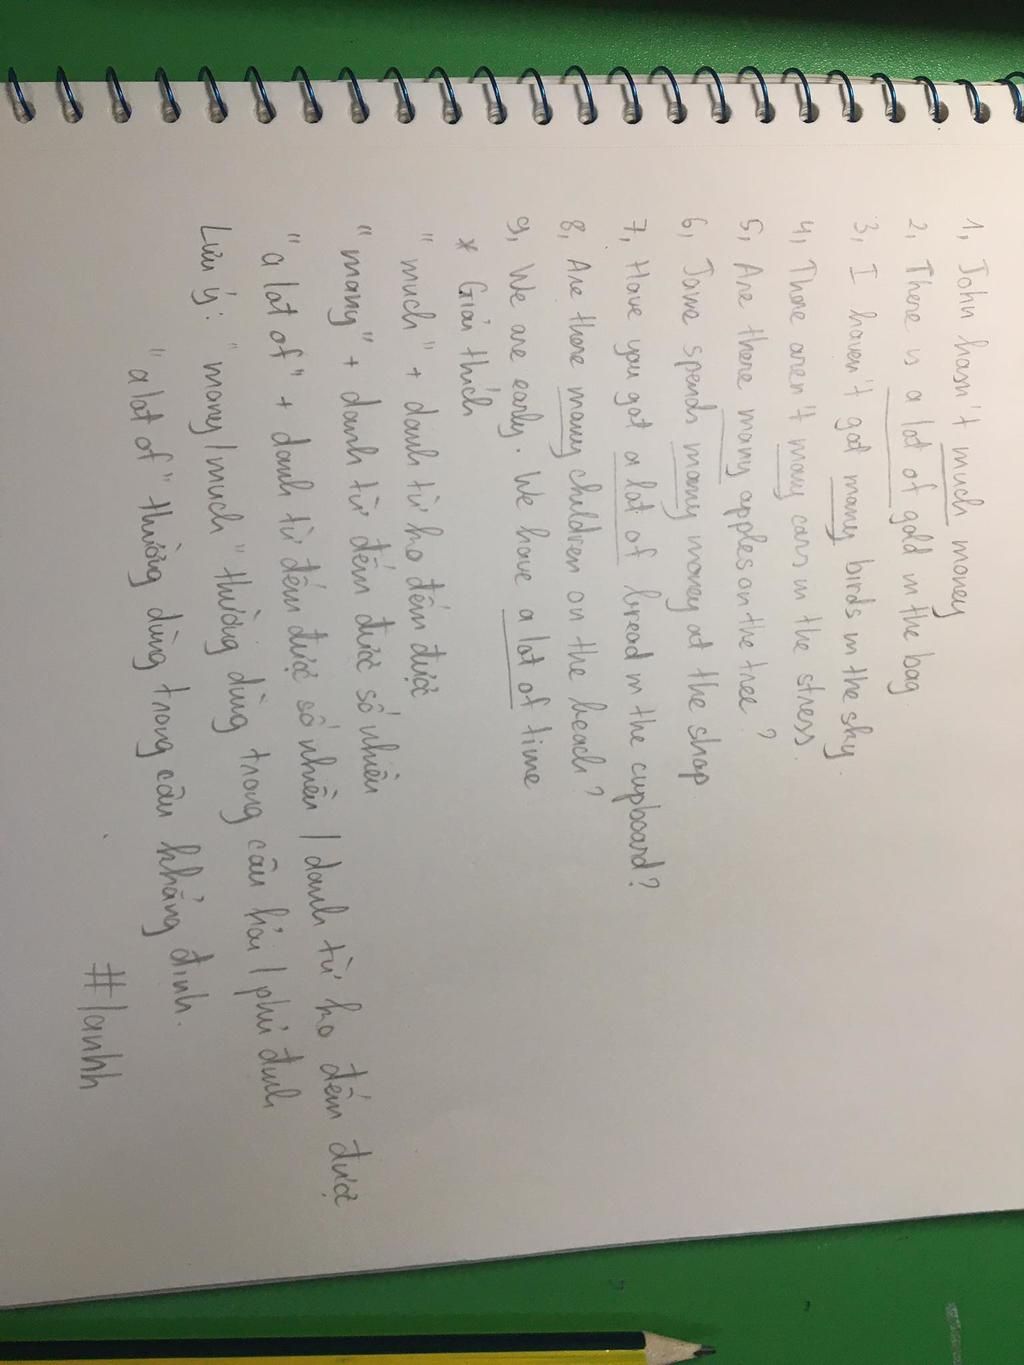 1, John hasn't much money
2, There is a lot of gold in the bag
3, I haven't got many birds in the sky.
4, There aren't many cars in the stress.
5, Are there many apples on the tree?
6, Jane spends many money at the shop.
7, Have you got a lot of bread in the cupboard?
8, Are there many children on the beach?
9, We are early. We have a lot of time
* Giải thích
"much" + danh từ ko đếm được
"many" + danh từ đếm được số nhiều
"a lot of" + danh từ đếm được số nhiều / danh từ ko đếm được
Lưu ý: "many/much" thường dùng trong câu hỏi / phủ định
"a lot of" thường dùng trong câu khẳng định.
#lanhh